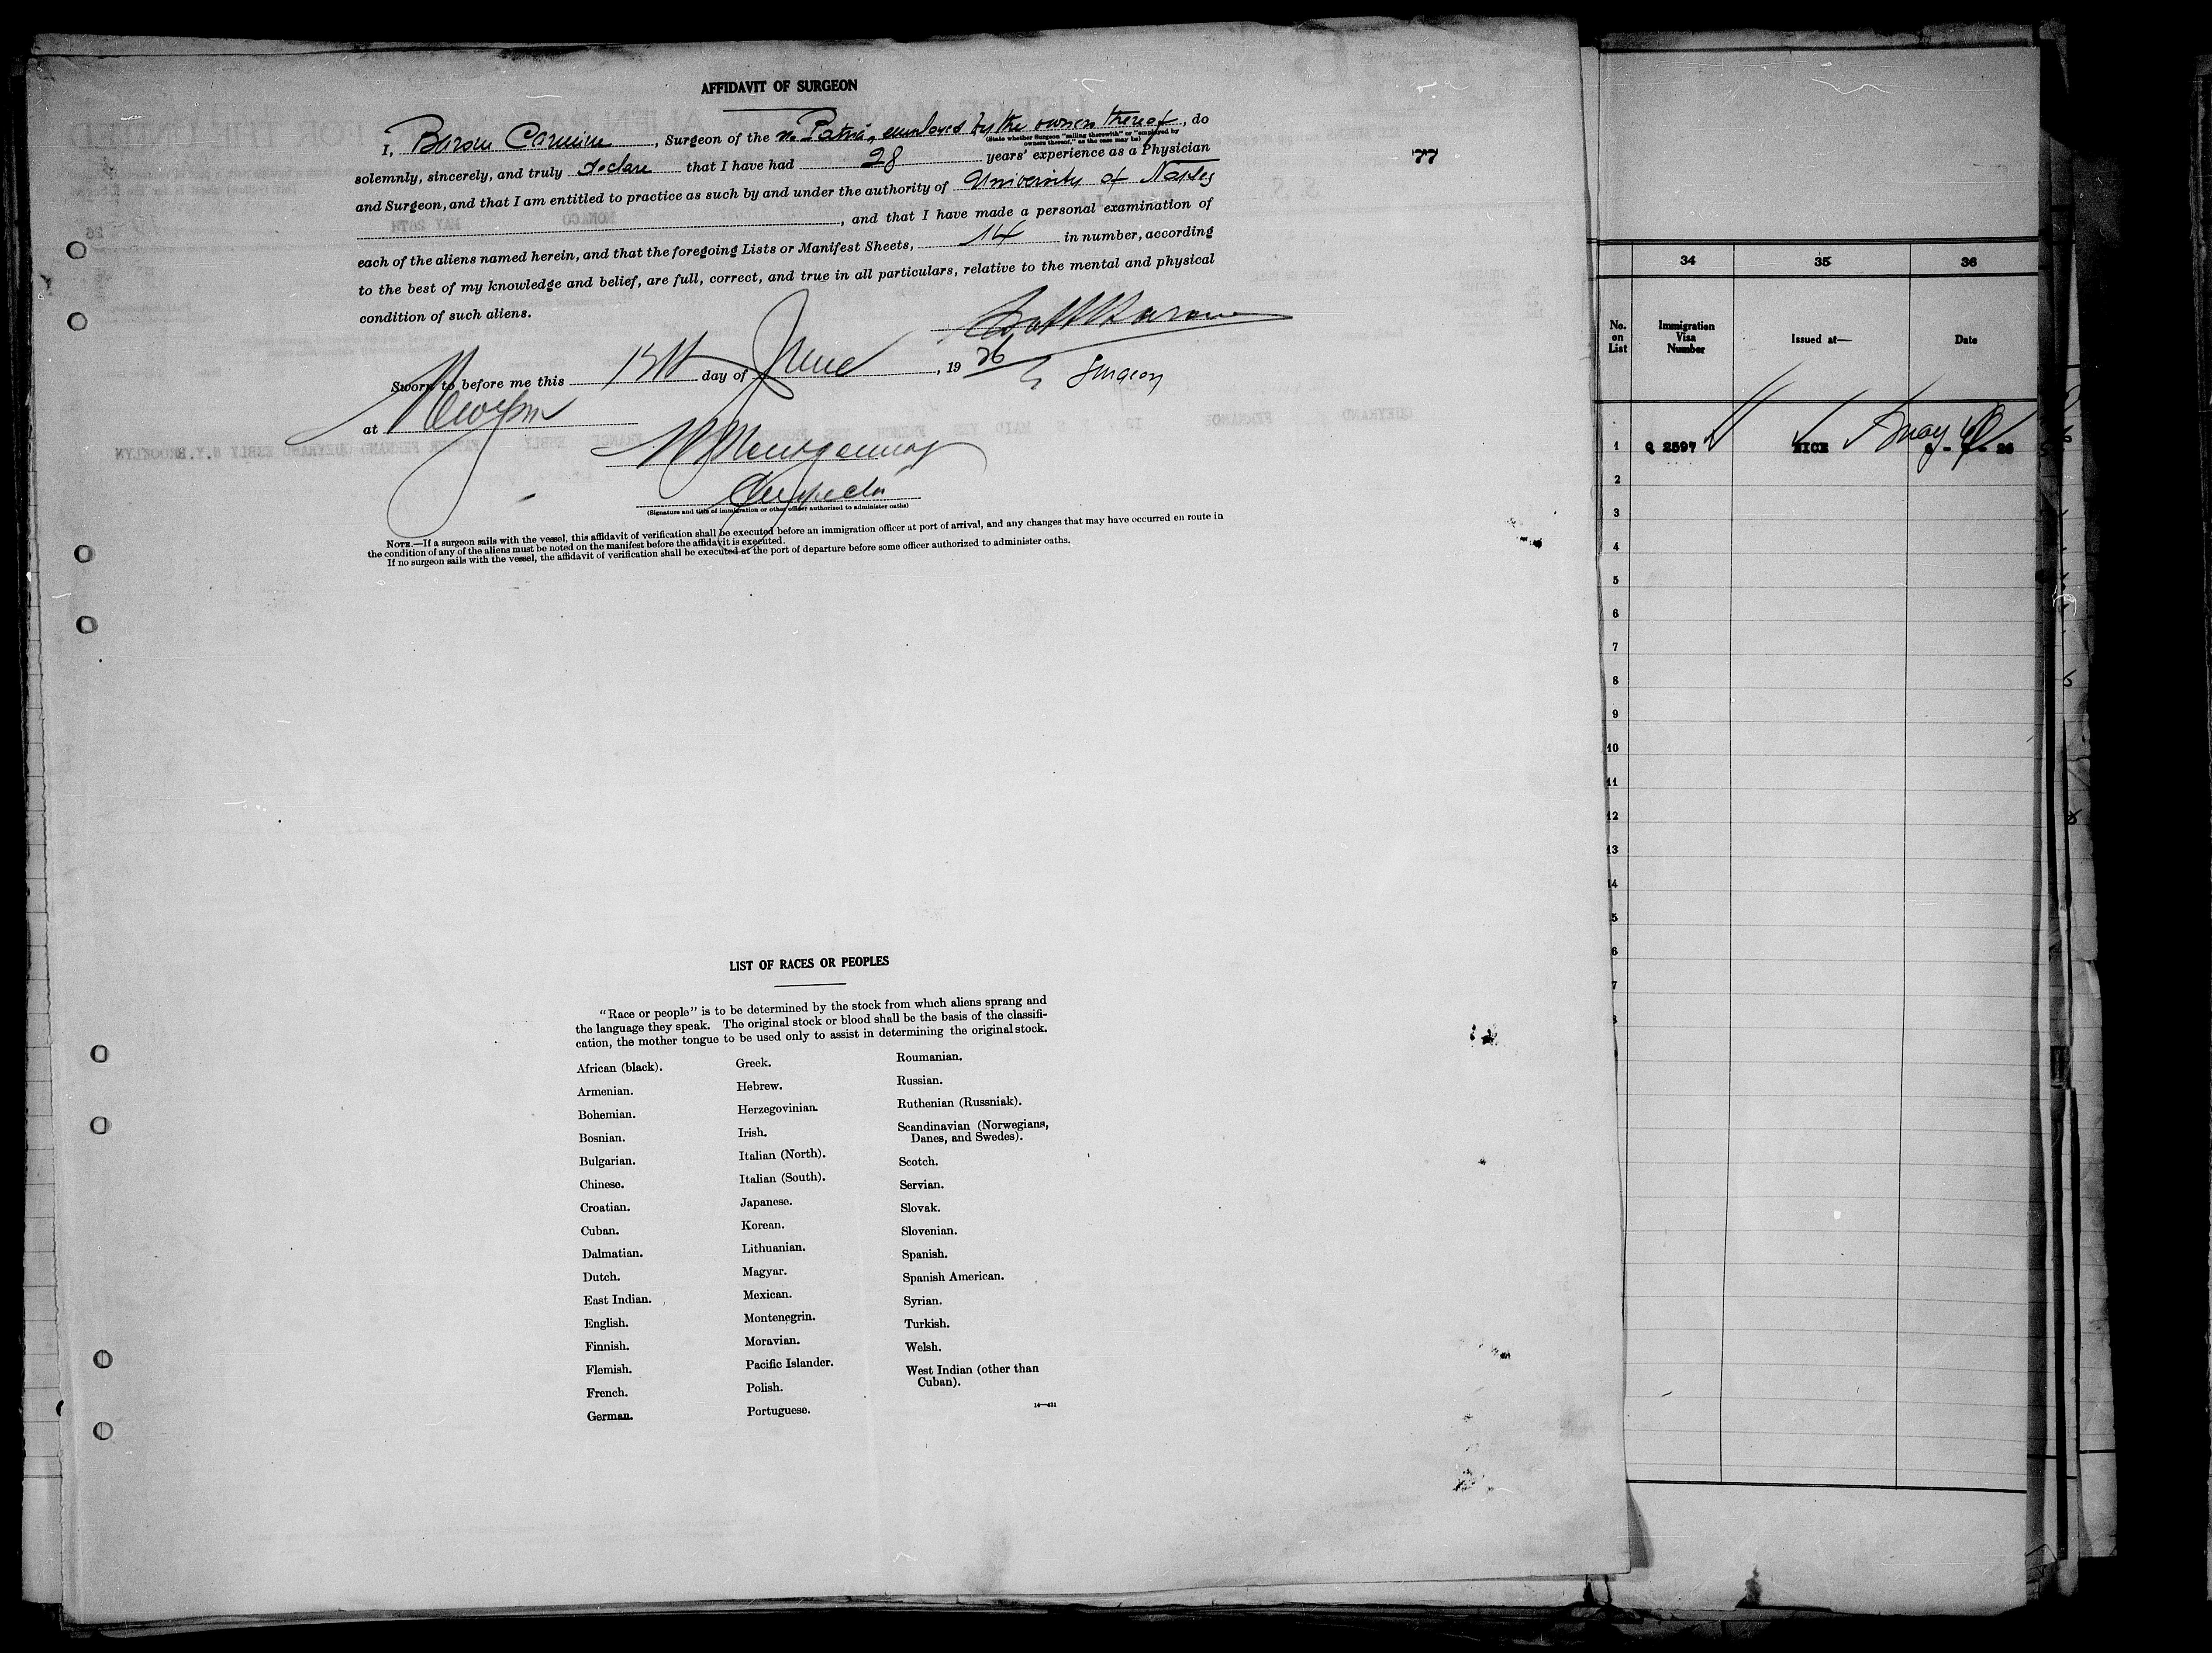 AFFIDAVIT OF SURGEON
I, Carmine, Surgeon of the Patria, employed by the owners thereof, do
(State whether Surgeon "sailing therewith" or "employed by
owners thereof," as the case may be)
solemnly, sincerely, and truly declare that I have had 28 years' experience as a Physician
and Surgeon, and that I am entitled to practice as such by and under the authority of University of Naples
, and that I have made a personal examination of
each of the aliens named herein, and that the foregoing Lists or Manifest Sheets, 14 in number, according
to the best of my knowledge and belief, are full, correct, and true in all particulars, relative to the mental and physical
condition of such aliens.
Surgeon
Sworn to before me this day of June, 1926
at
Inspector
(Signature and title of immigration or other officer authorized to administer oaths)
NOTE.—If a surgeon sails with the vessel, this affidavit of verification shall be executed before an immigration officer at port of arrival, and any changes that may have occurred en route in
the condition of any of the aliens must be noted on the manifest before the affidavit is executed.
If no surgeon sails with the vessel, the affidavit of verification shall be executed at the port of departure before some officer authorized to administer oaths.
LIST OF RACES OR PEOPLES
"Race or people" is to be determined by the stock from which aliens sprang and
the language they speak. The original stock or blood shall be the basis of the classifi-
cation, the mother tongue to be used only to assist in determining the original stock.
African (black).
Armenian.
Bohemian.
Bosnian.
Bulgarian.
Chinese.
Croatian.
Cuban.
Dalmatian.
Dutch.
East Indian.
English.
Finnish.
Flemish.
French.
German.
Greek.
Hebrew.
Herzegovinian.
Irish.
Italian (North).
Italian (South).
Japanese.
Korean.
Lithuanian.
Magyar.
Mexican.
Montenegrin.
Moravian.
Pacific Islander.
Polish.
Portuguese.
Roumanian.
Russian.
Ruthenian (Russniak).
Scandinavian (Norwegians,
Danes, and Swedes).
Scotch.
Servian.
Slovak.
Slovenian.
Spanish.
Spanish American.
Syrian.
Turkish.
Welsh.
West Indian (other than
Cuban).
77
34 35 36
No.
on
List
Immigration
Visa
Number
Issued at—
Date
1 Q 2597 NICE May 26
2
3
4
5
6
7
8
9
10
11
12
13
14
5
6
7
8